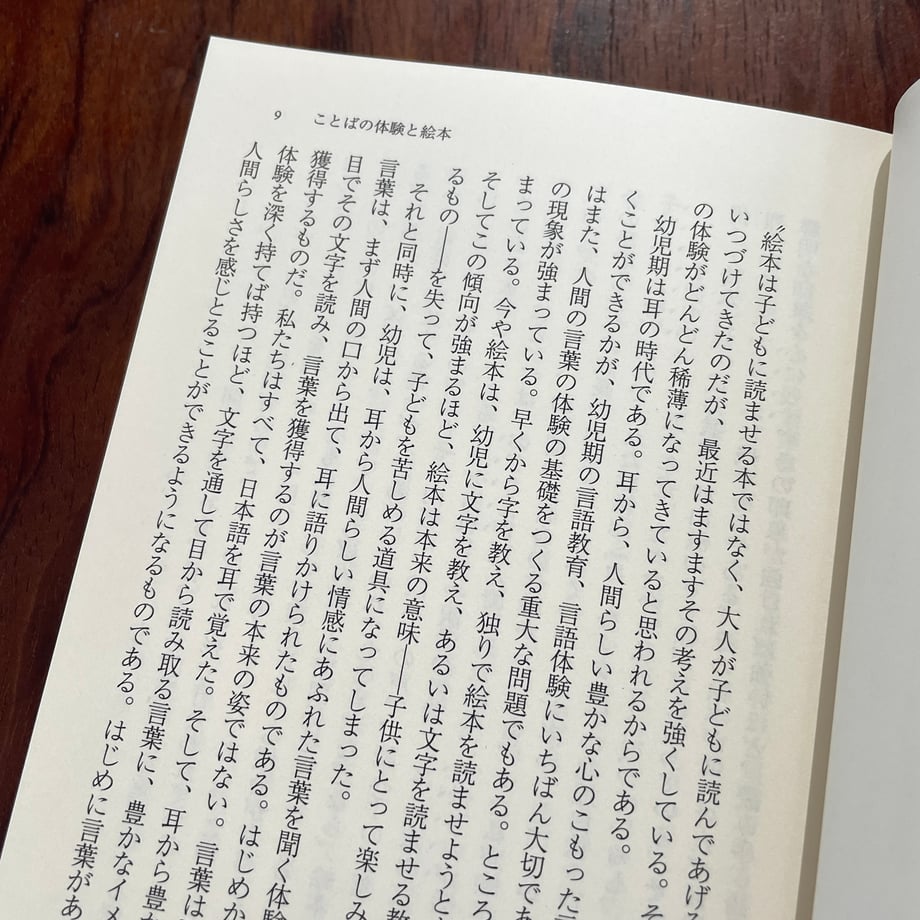 9 ことばの体験と絵本
〝絵本は子どもに読ませる本ではなく、大人が子どもに読んであげる
いつづけてきたのだが、最近はますますその考えを強くしている。そ
の体験がどんどん稀薄になってきていると思われるからである。
幼児期は耳の時代である。耳から、人間らしい豊かな心のこもった言
くことができるかが、幼児期の言語教育、言語体験にいちばん大切であ
はまた、人間の言葉の体験の基礎をつくる重大な問題でもある。ところ
の現象が強まっている。早くから字を教え、独りで絵本を読ませようと
まっている。今や絵本は、幼児に文字を教え、あるいは文字を読ませる教
そしてこの傾向が強まるほど、絵本は本来の意味——子供にとって楽しみ
るもの——を失って、子どもを苦しめる道具になってしまった。
それと同時に、幼児は、耳から人間らしい情感にあふれた言葉を聞く体験
言葉は、まず人間の口から出て、耳に語りかけられたものである。はじめか
目でその文字を読み、言葉を獲得するのが言葉の本来の姿ではない。言葉は
獲得するものだ。私たちはすべて、日本語を耳で覚えた。そして、耳から豊か
体験を深く持てば持つほど、文字を通して目から読み取る言葉に、豊かなイメ
人間らしさを感じとることができるようになるものである。はじめに言葉があ